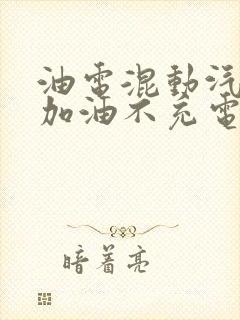 油電混動汽
加油不充電
暗着亮